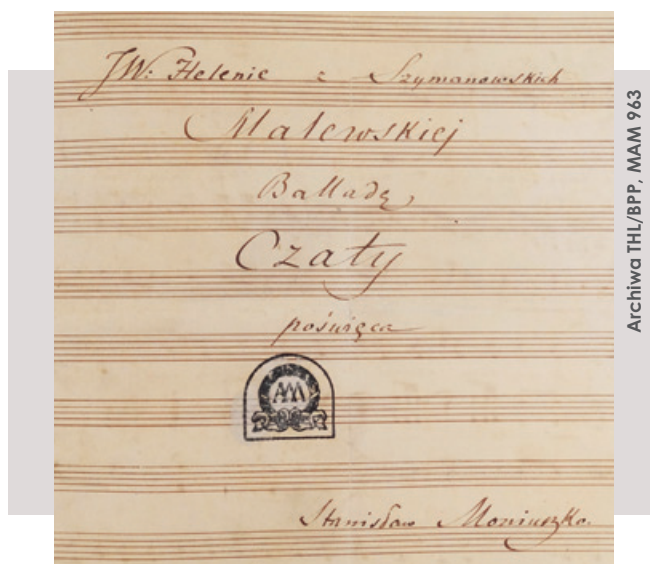 JW: Helenie z Szymanowskich
Malewskiej
Balladę
Czaty
poświęca
AM
Stanisław Moniuszko.
Archiwa THL/BPP, MAM 963